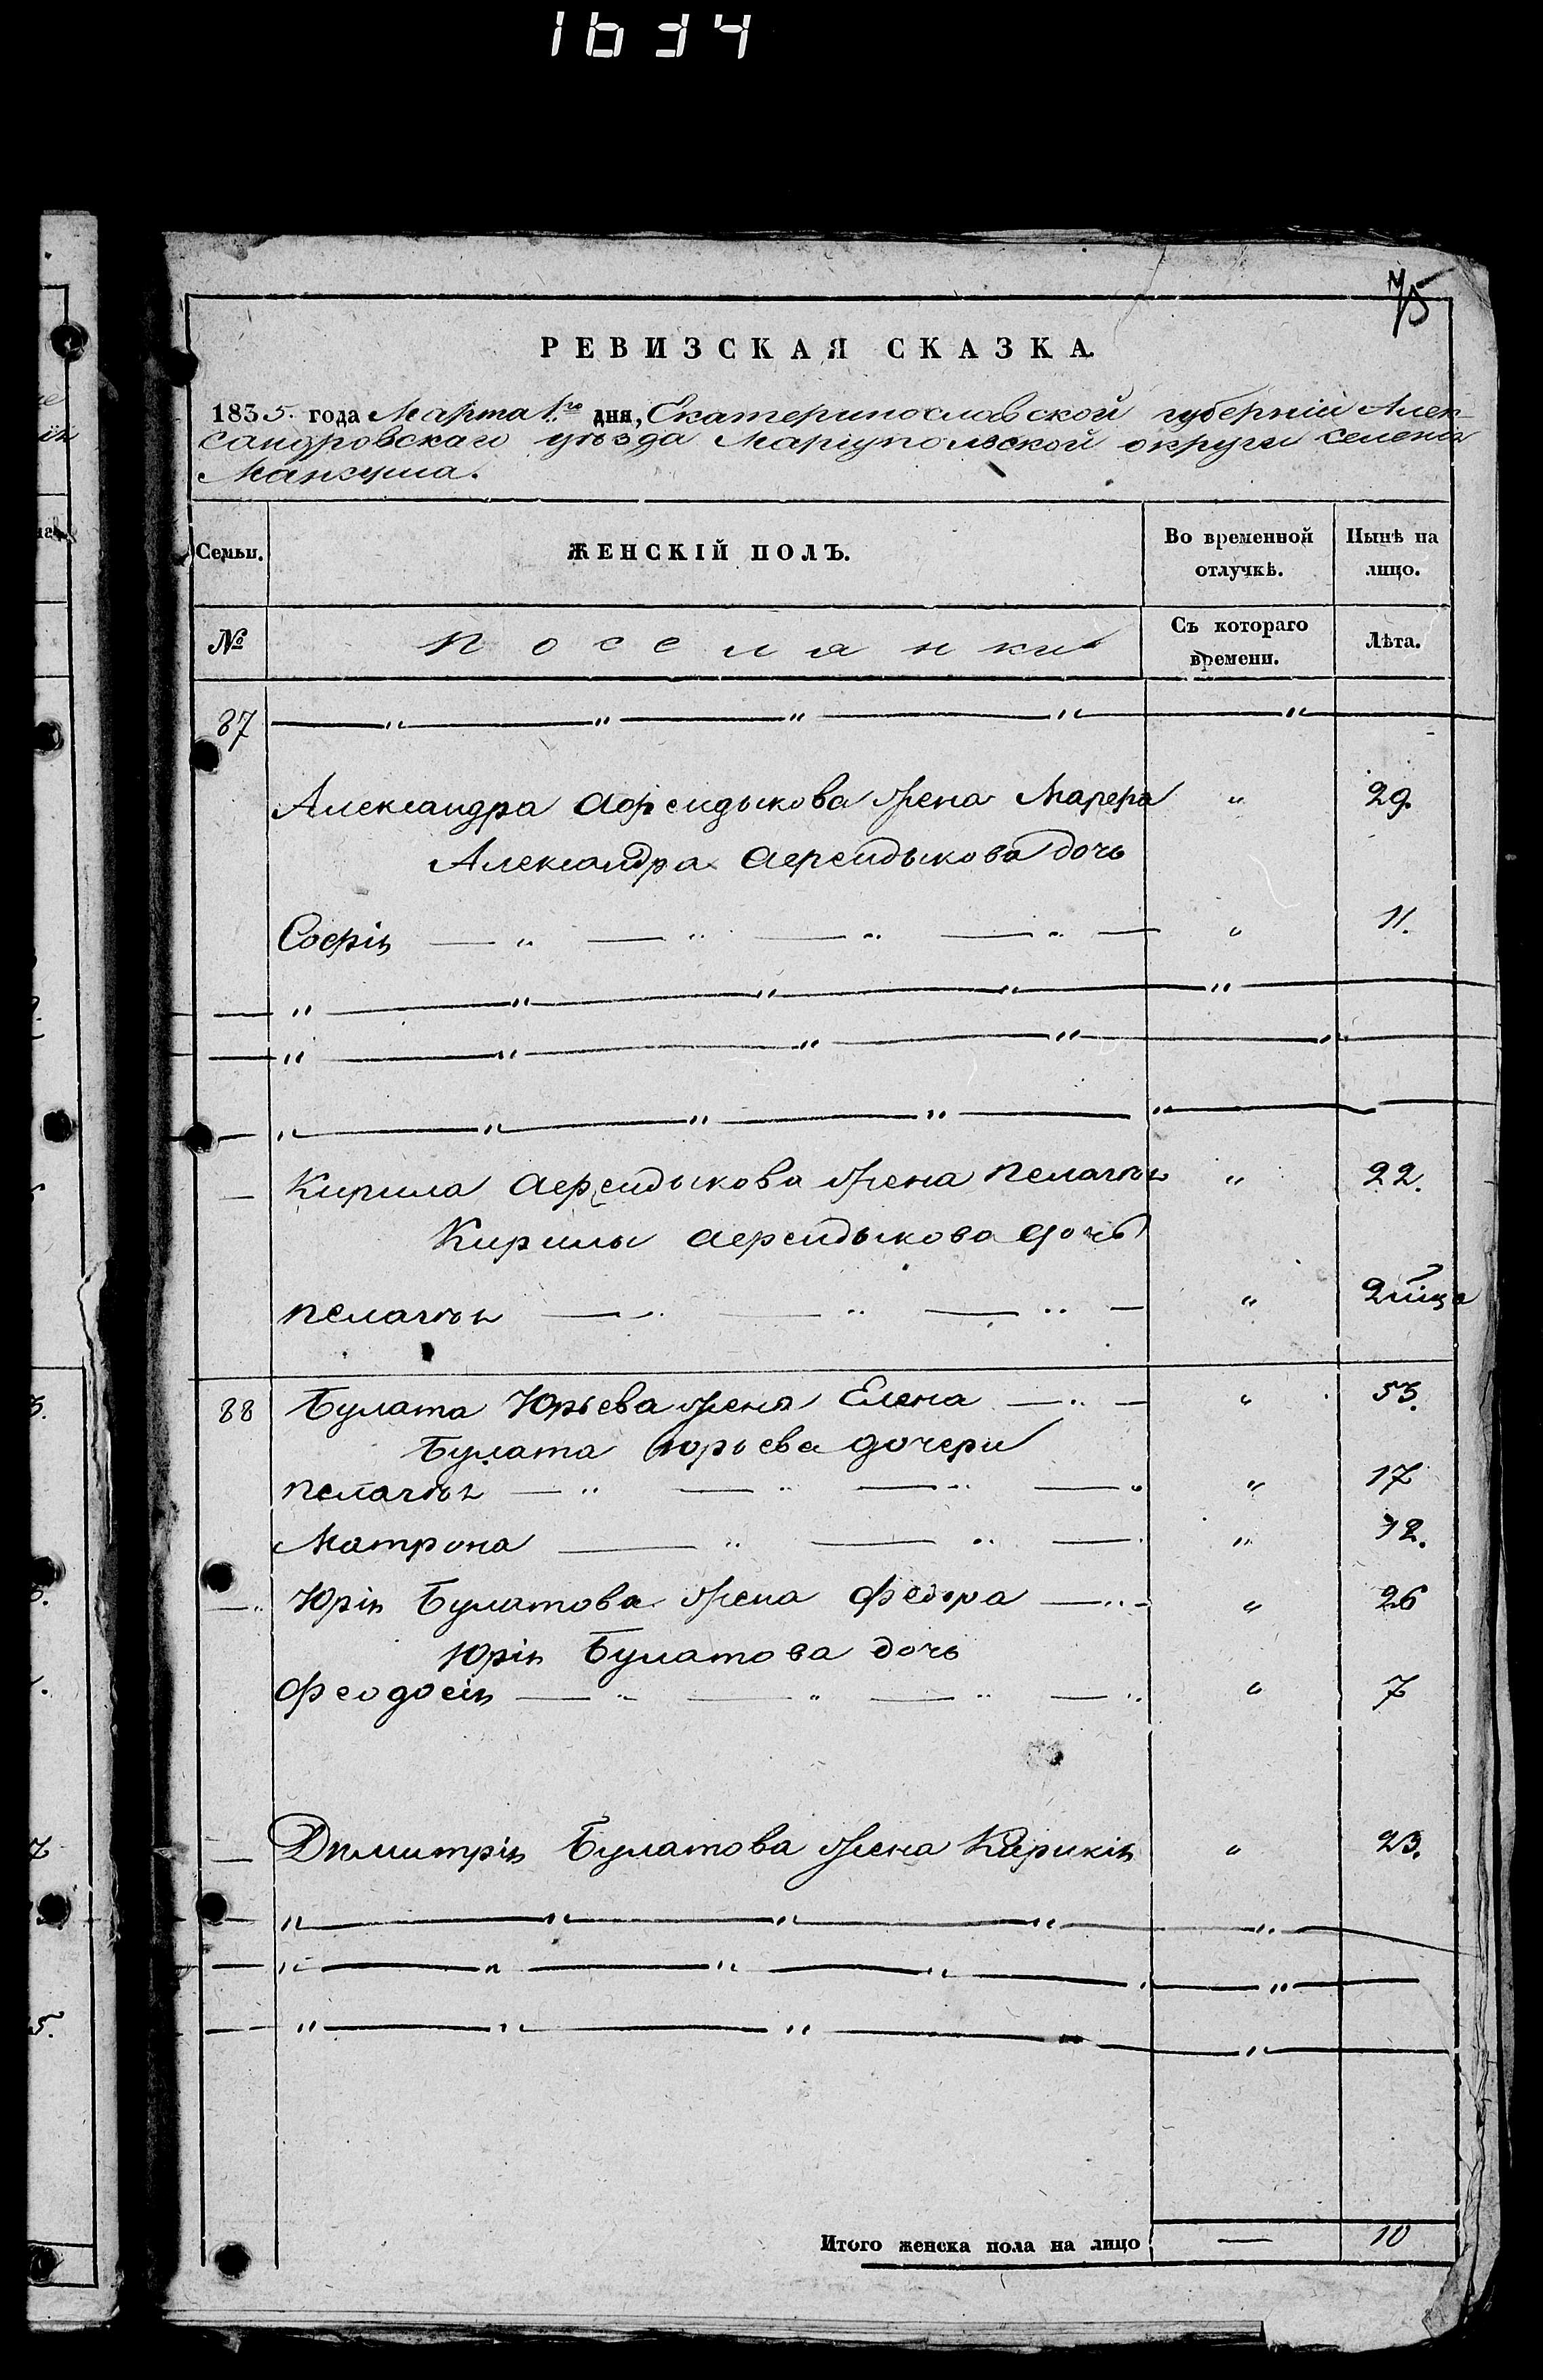 1634
75
РЕВИЗСКАЯ СКАЗКА.
1835. года Марта 1го дня, Екатеринославской губерніи Алек-
сандровскаго уѣзда Маріупольской округи селенія
Мангуша.
Семьи.
ЖЕНСКІЙ ПОЛЪ.
Во временной отлучкѣ.
Нынѣ на лицо.
№
Поселянки
Съ котораго времени.
Лѣта.
87 — " — " — " — " — " —
Александра жена " 29.
Александра дочь
Софія — " — " — " — " — " 11.
— " — " — " — " — " —
— " — " — " — " — " —
— " — " — " — " — " —
— Кирила жена Пелагія " 22.
Кирилы дочь
Пелагія — " — " — " — "
88 Булата Юрьева жена Елена — " — " 53.
Булата Юрьева дочери
Пелагія — " — " — " — " " 17
Матрона — " — " — " 12.
— " Юрія Булатова жена Федора — " — " 26
Юрія Булатова дочь
Феодосія — " — " — " — " " 7
— Димитрія Булатова жена Кирикія " 23.
— " — " — " — " — " —
— " — " — " — " — " —
— " — " — " — " —
Итого женска пола на лицо — 10